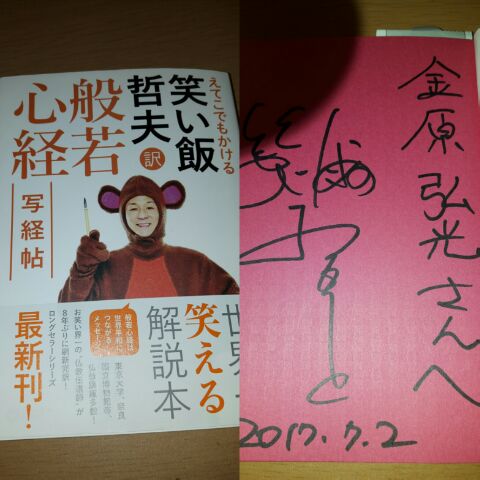 えてこでもかける
笑い飯
哲夫 訳
般若
心経
写経帖
般若心経は
世界平和に
つながる
メッセージ
世界一
笑える
解説本
東京大学、奈良
国立博物館等、
仏教講義多数!
お笑い界一の“仏教伝道師”が
8年ぶりに刷新完訳!
ロングセラーシリーズ
最新刊!
金原弘光さんへ
笑い飯
哲夫
2017.7.2